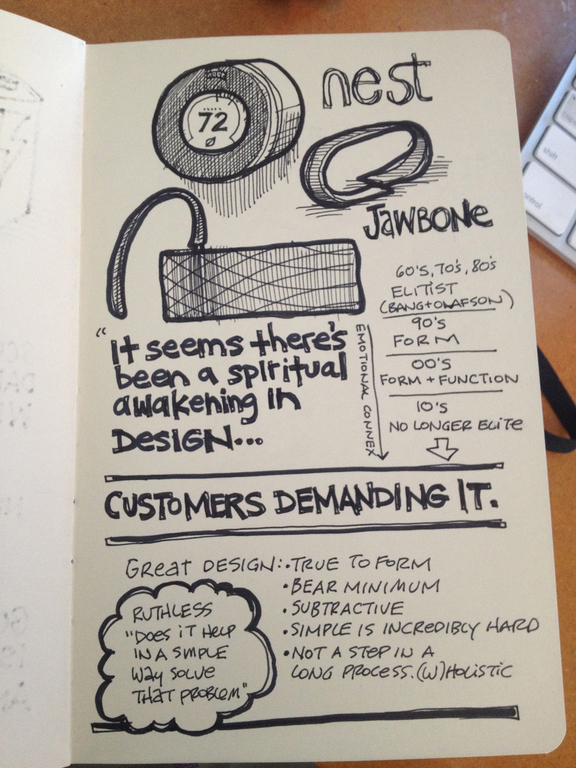 72
nest
JAWBONE
60'S, 70'S, 80'S
ELITIST
(BANG+OLAFSON)
90'S
FORM
00'S
FORM + FUNCTION
10'S
NO LONGER ELITE
EMOTIONAL CONNEX
"It seems there's
been a spiritual
awakening in
DESIGN...
CUSTOMERS DEMANDING IT.
Great DESIGN:
• TRUE TO FORM
• BEAR MINIMUM
• SUBTRACTIVE
• SIMPLE IS INCREDIBLY HARD
• NOT A STEP IN A
LONG PROCESS. (W)HOLISTIC
RUTHLESS
"DOES IT HELP
IN A SIMPLE
WAY SOLVE
THAT PROBLEM"
shift
control